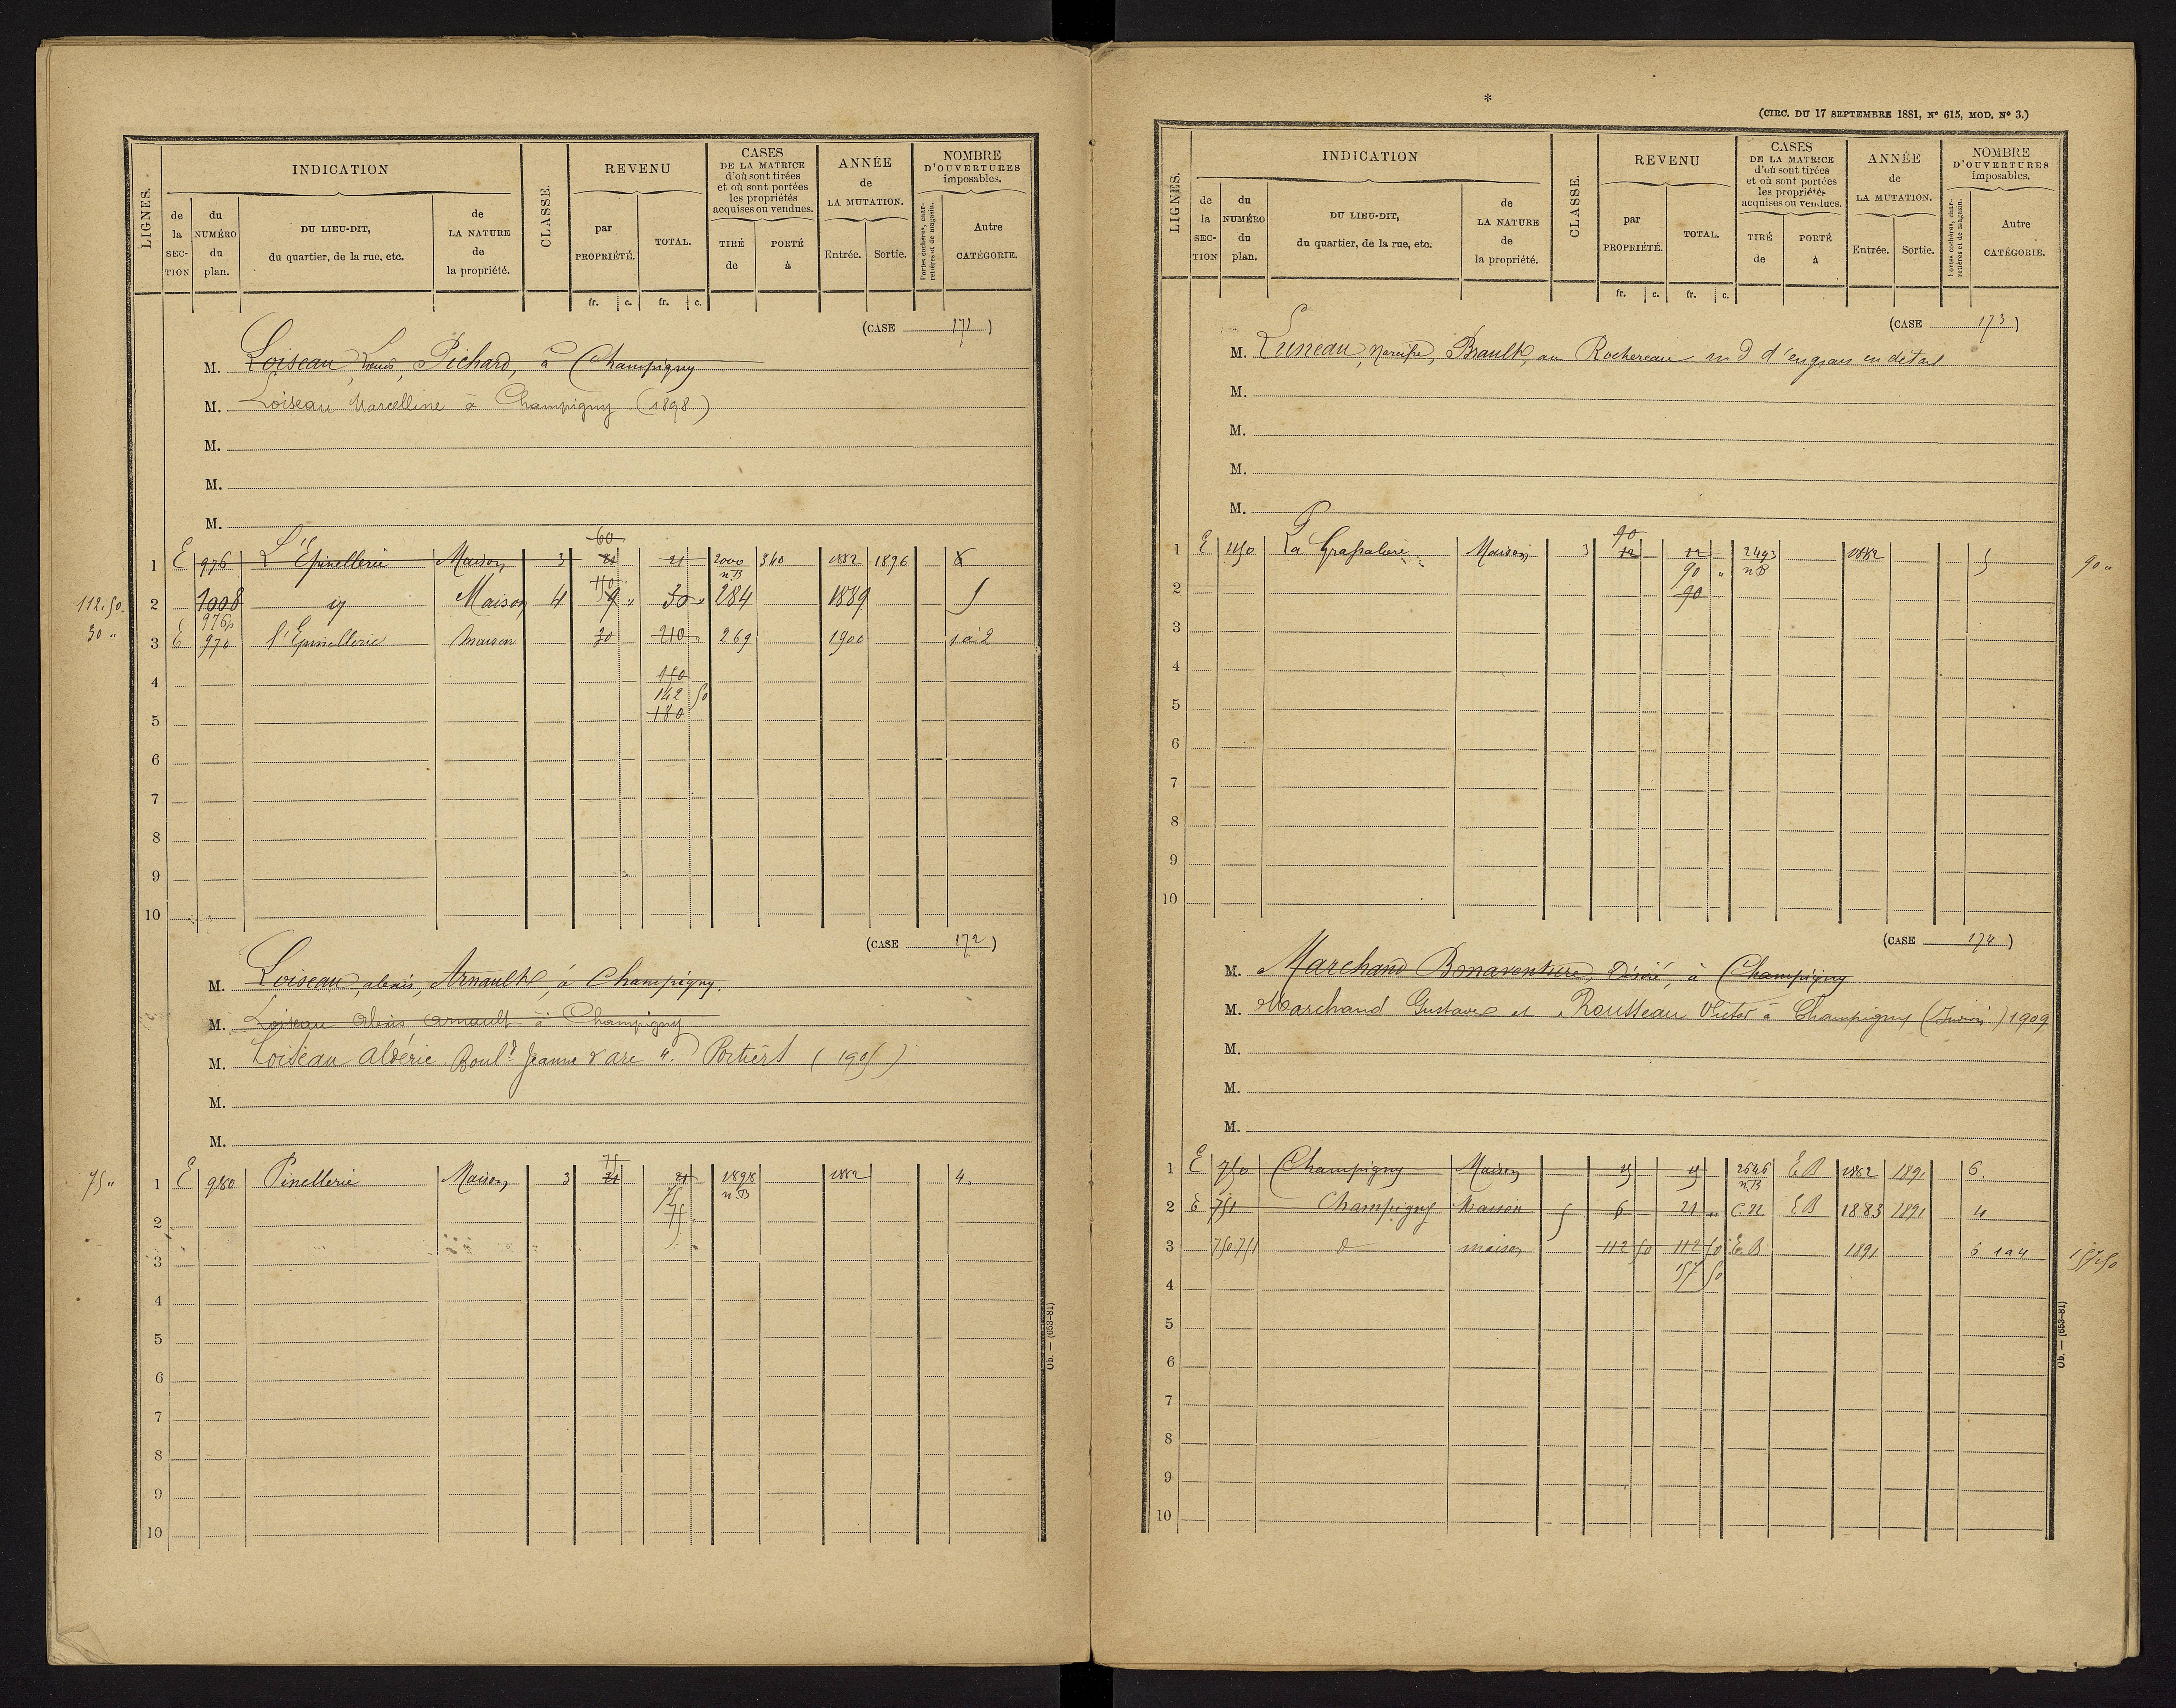 LIGNES.
INDICATION
CLASSE.
REVENU
CASES
DE LA MATRICE
d'où sont tirées
et où sont portées
les propriétés
acquises ou vendues.
ANNÉE
de
LA MUTATION.
NOMBRE
D'OUVERTURES
imposables.
de la SECTION
du NUMÉRO du plan.
DU LIEU-DIT,
du quartier, de la rue, etc.
de LA NATURE de la propriété.
par PROPRIÉTÉ.
TOTAL.
TIRÉ de
PORTÉ à
Entrée.
Sortie.
Portes cochères, charretières et de magasin.
Autre CATÉGORIE.
fr. c. fr. c.
(CASE 171)
M. Loiseau, Louis, Pichard, à Champigny
M. Loiseau Marcelline à Champigny (1898)
M.
M.
M.
60
1 E 976 L'Epinellerie Maison 3 21 21 2000 340 1882 1896 8
n.B
110
112.50. 2 1008 id Maison 4 9 " 30 " 284 1889 5
976p
30 " 3 E 970 l'Epinellerie Maison 30 210 269 1900 1 à 2
4 150
142 50
5 180
6
7
8
9
10
(CASE 172)
M. Loiseau, alexis, Arnault, à Champigny.
M. Loiseau Alexis Arnault à Champigny
M. Loiseau Aldéric Boul.d Jeanne d'arc 4. Poitiers (1905)
M.
M.
75
75 " 1 E 980 Pinellerie Maison 3 21 21 1898 1882 4.
75 n.B
2 75
3
4
5
6
7
8
9
10
Ob. — (653-81)
*
(CIRC. DU 17 SEPTEMBRE 1881, N° 615, MOD. N° 3.)
LIGNES.
INDICATION
CLASSE.
REVENU
CASES
DE LA MATRICE
d'où sont tirées
et où sont portées
les propriétés
acquises ou vendues.
ANNÉE
de
LA MUTATION.
NOMBRE
D'OUVERTURES
imposables.
de la SECTION
du NUMÉRO du plan.
DU LIEU-DIT,
du quartier, de la rue, etc.
de LA NATURE de la propriété.
par PROPRIÉTÉ.
TOTAL.
TIRÉ de
PORTÉ à
Entrée.
Sortie.
Portes cochères, charretières et de magasin.
Autre CATÉGORIE.
fr. c. fr. c.
(CASE 173)
M. Luneau, Narcisse, Brault, au Rochereau md d'engrais en détail
M.
M.
M.
M.
90
1 E 1150 La Grassalière Maison 3 12 12 2493 1882 5 90 "
90 " n.B
2 90
3
4
5
6
7
8
9
10
(CASE 174)
M. Marchand Bonaventure, Désiré, à Champigny
M. Marchand Gustave et Rousseau Victor à Champigny 1909
M.
M.
M.
1 E 750 Champigny Maison 15 15 2646 E.B 1882 1891 6.
n.B
2 E 751 Champigny Maison 5 6 21 " C.N E.B 1883 1891 4
3 750.751 d maison 112 50 112 50 E.B 1891 6 1 à 4 157.50
4 157 50
5
6
7
8
9
10
Ob. — (653-81)